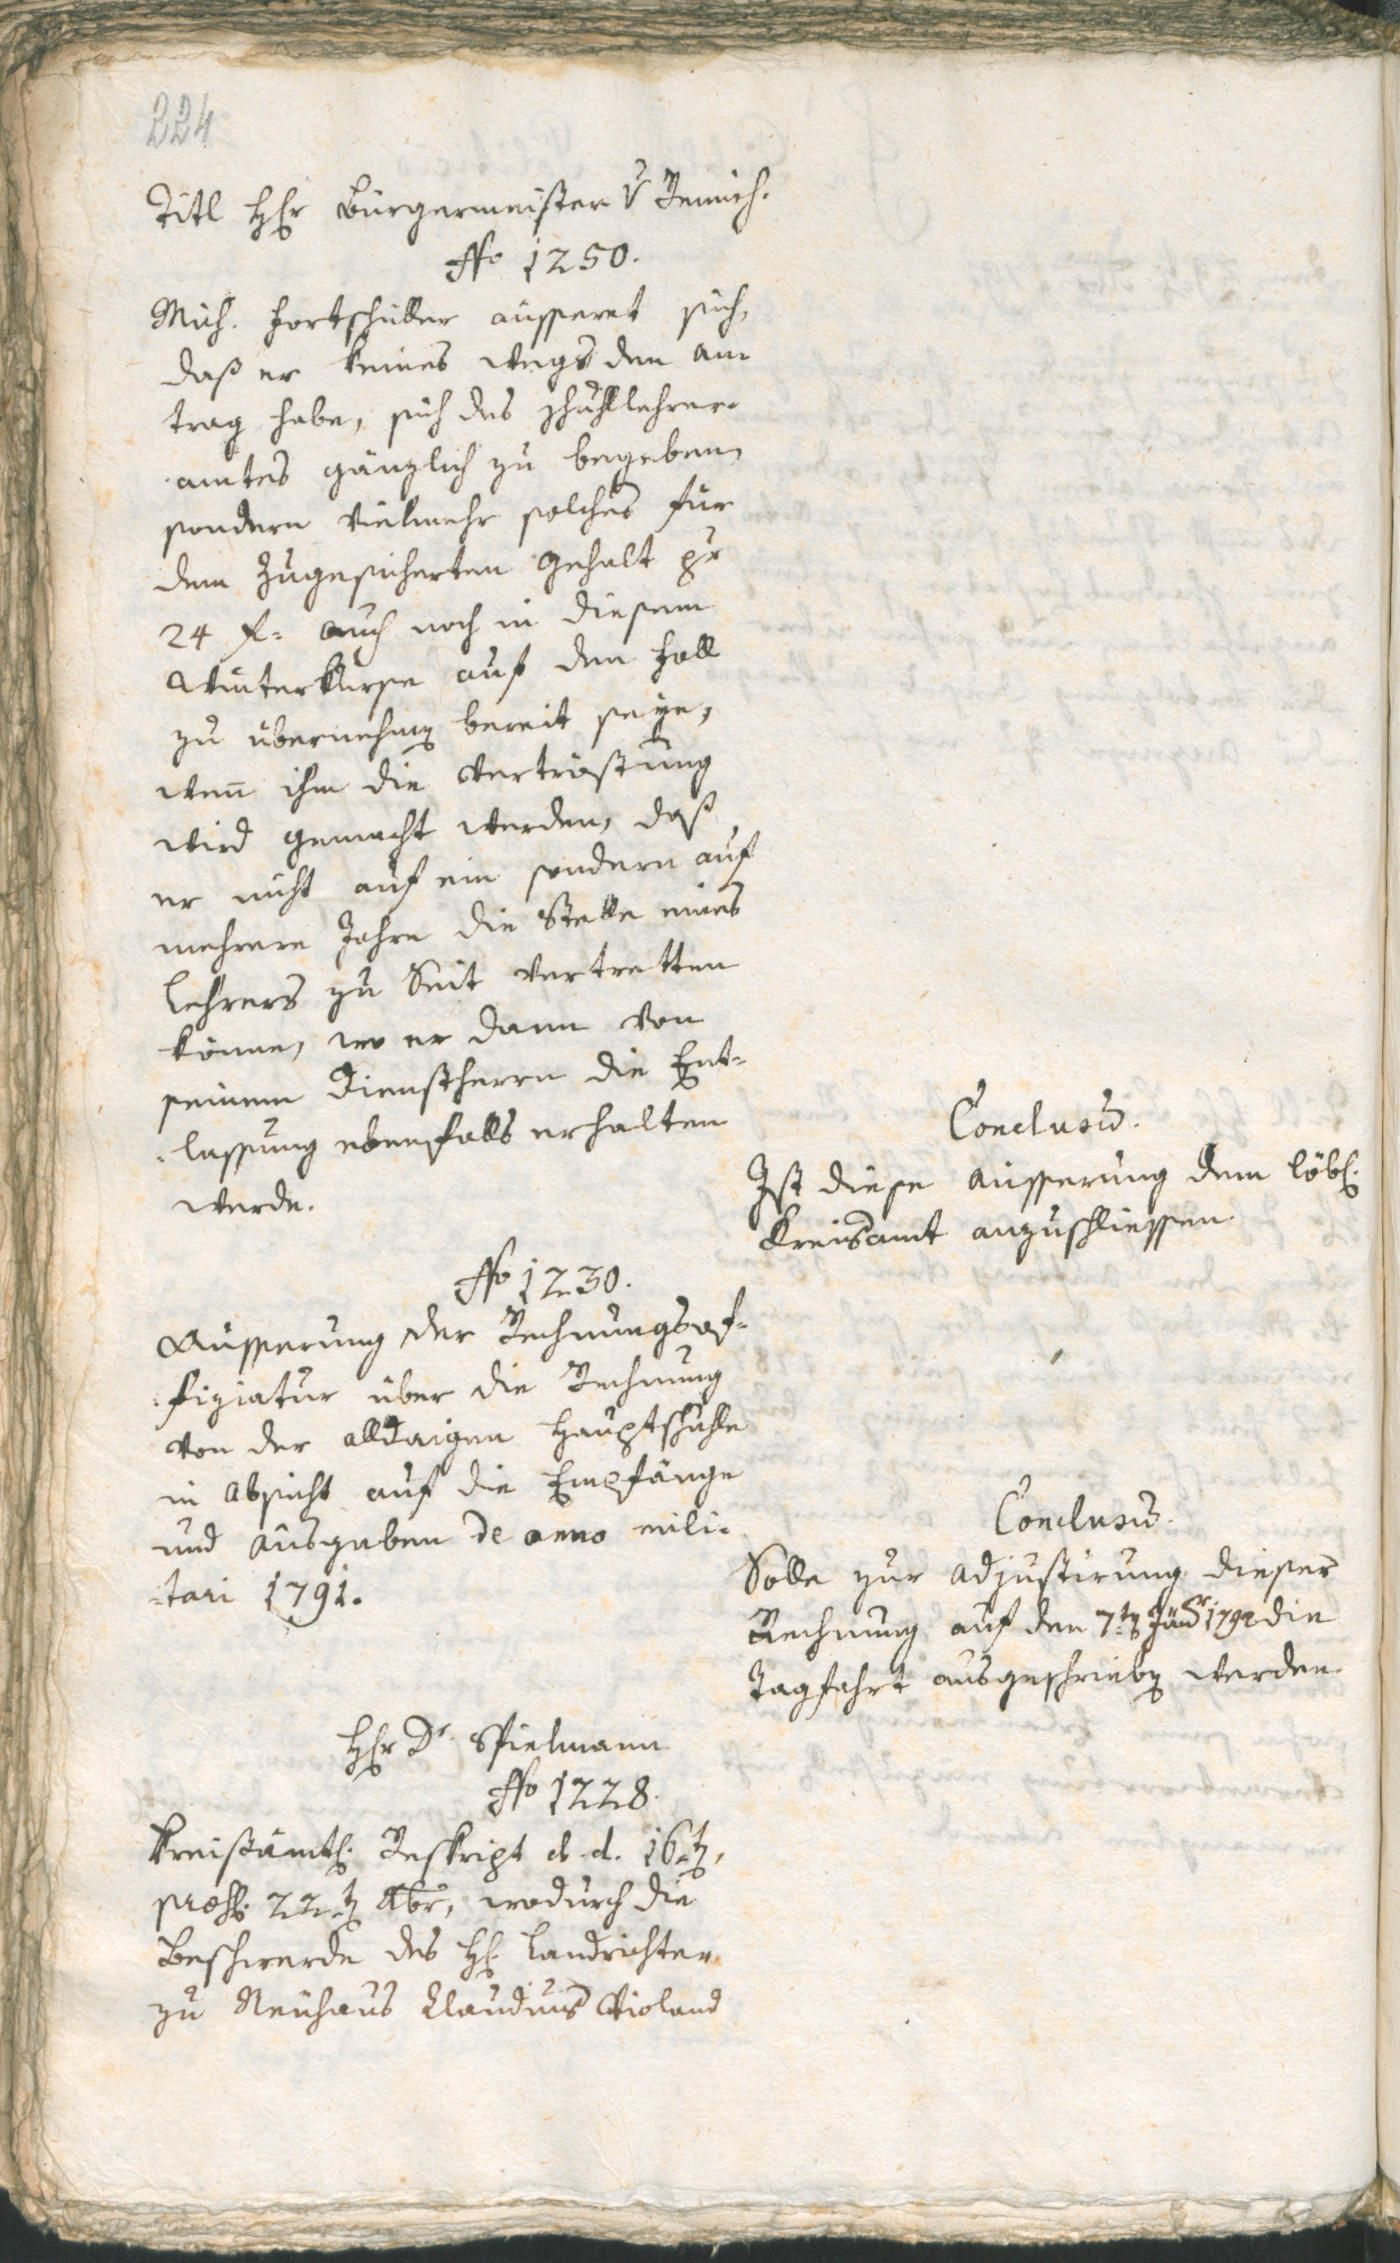 224
Titl H̄r Burgermeister v Remich.
No 1250.
Mich. Hortschuller äussert sich,
daß er keines wegs den an-
trag habe, sich des Schullehrer-
amtes gänzlich zu begeben,
sondern vielmehr solches für
dem zugesicherten Gehalt pr
24 f: auch noch in diesem
Winterkurse auf den Fall
zu übernehmen bereit seye,
wenn ihm die Vertröstung
wird gemacht werden, daß
er nicht auf ein sondern auf
mehrere Jahre die Stelle eines
Lehrers zu Seit vertretten
könne, wo er dann von
seinem Dienstherrn die Ent-
-lassung ebenfalls erhalten
werde.
Conclusum.
Ist diese Äusserung dem löbl.
Kreisamt anzuschliessen.
No 1230.
Äusserung der Rechnungsof-
-fiziatur über die Rechnung
von der alldaigen Hauptschulle
in Absicht auf die Empfänge
und Ausgaben de anno mili-
-tari 1791.
Conclusum.
Solle zur Adjustirung dieser
Rechnung auf den 7ten Jänner 1792 die
Tagfahrt ausgeschrieben werden
H̄r Dr. Spielmann
No 1228.
Kreisämtl. Reskript d. d. 16ten,
praes. 22ten 9br, wodurch die
Beschwerde des H. Landrichter
zu Neuhaus Claudius Violand